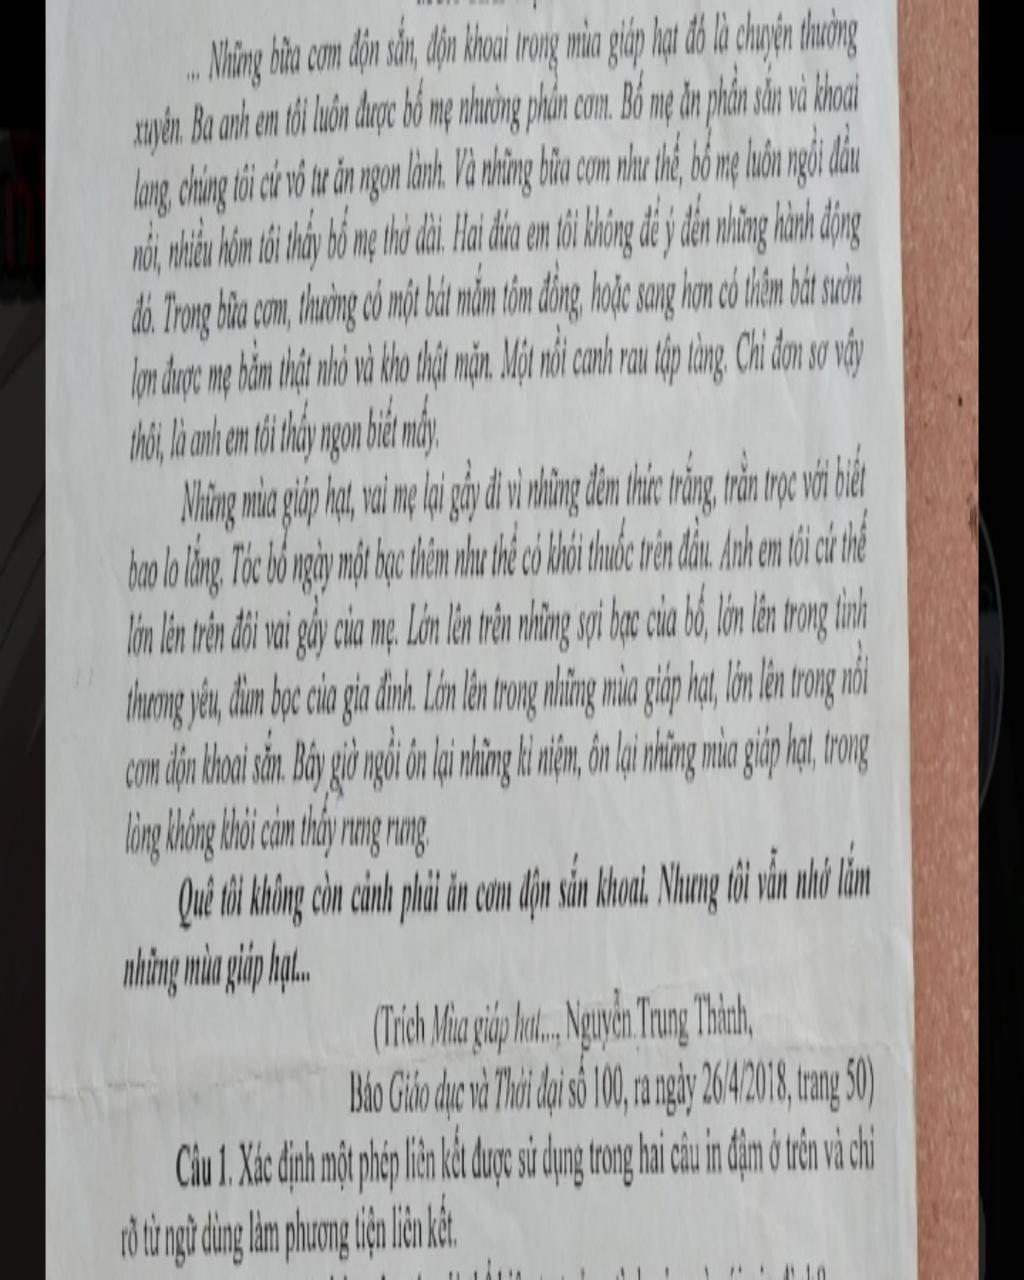 ... Những bữa cơm độn sắn, độn khoai trong mùa giáp hạt đó là chuyện thường
xuyên. Ba anh em tôi luôn được bố mẹ nhường phần cơm. Bố mẹ ăn phần sắn và khoai
lang, chúng tôi cứ vô tư ăn ngon lành. Và những bữa cơm như thế, bố mẹ luôn ngồi đầu
nồi, nhiều hôm tôi thấy bố mẹ thở dài. Hai đứa em tôi không để ý đến những hành động
đó. Trong bữa cơm, thường có một bát mắm tôm đồng, hoặc sang hơn có thêm bát sườn
lợn được mẹ bằm thật nhỏ và kho thật mặn. Một nồi canh rau tập tàng. Chỉ đơn sơ vậy
thôi, là anh em tôi thấy ngon biết mấy.
Những mùa giáp hạt, vai mẹ lại gầy đi vì những đêm thức trắng, trằn trọc với biết
bao lo lắng. Tóc bố ngày một bạc thêm như thể có khói thuốc trên đầu. Anh em tôi cứ thế
lớn lên trên đôi vai gầy của mẹ. Lớn lên trên những sợi bạc của bố, lớn lên trong tình
thương yêu, đùm bọc của gia đình. Lớn lên trong những mùa giáp hạt, lớn lên trong nồi
cơm độn khoai sắn. Bây giờ ngồi ôn lại những kỉ niệm, ôn lại những mùa giáp hạt, trong
lòng không khỏi cảm thấy rưng rưng.
Quê tôi không còn cảnh phải ăn cơm độn sắn khoai. Nhưng tôi vẫn nhớ lắm
những mùa giáp hạt...
(Trích Mùa giáp hạt..., Nguyễn Trung Thành,
Báo Giáo dục và Thời đại số 100, ra ngày 26/4/2018, trang 50)
Câu 1. Xác định một phép liên kết được sử dụng trong hai câu in đậm ở trên và chỉ
rõ từ ngữ dùng làm phương tiện liên kết.